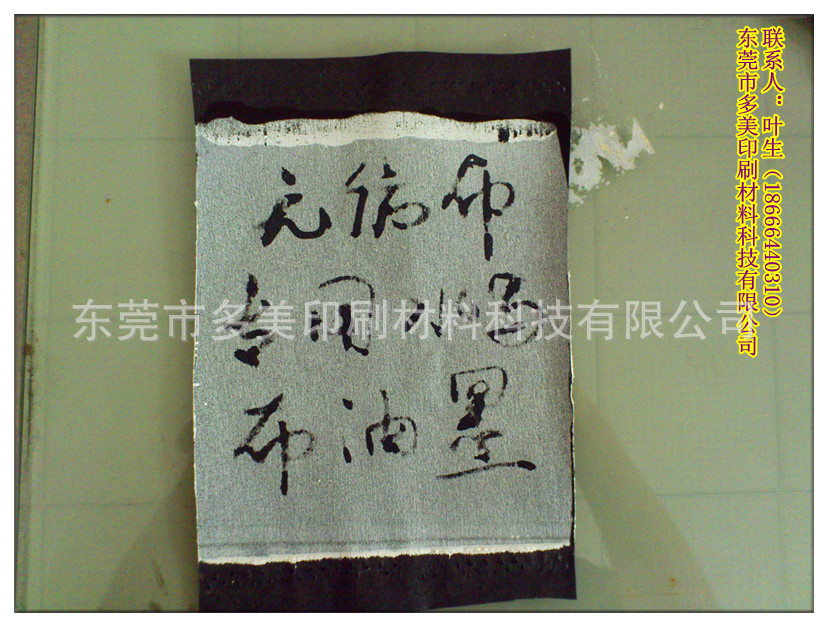 联系人：叶生（18666440310）
东莞市多美印刷材料科技有限公司
无纺布
东莞市多美印刷材料科技有限公司
布油墨